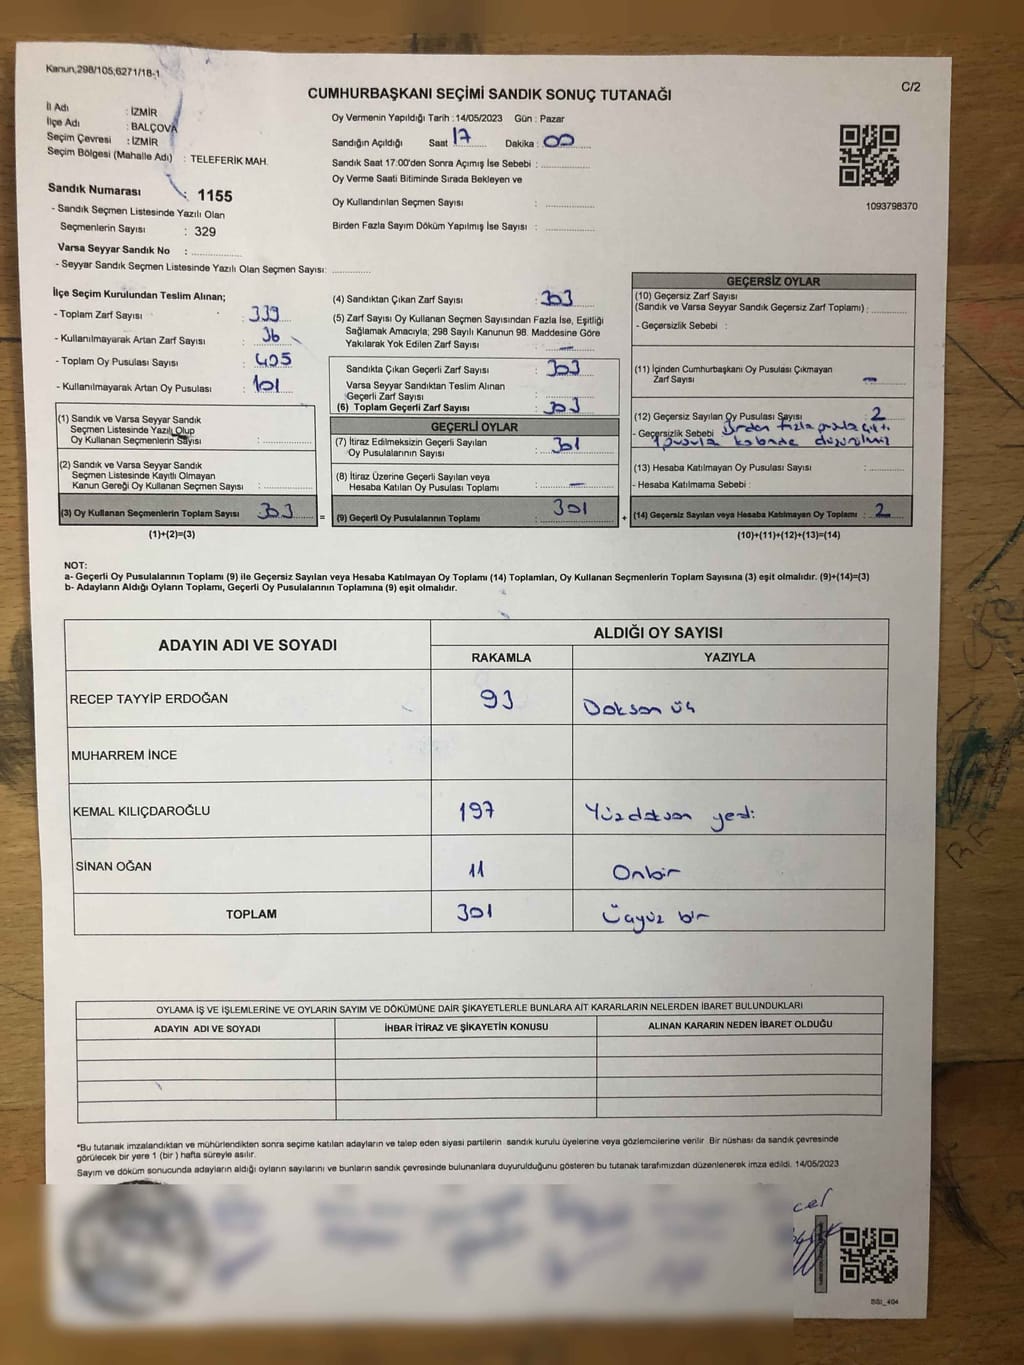 Kanun,298/105,6271/18-1
C/2
CUMHURBAŞKANI SEÇİMİ SANDIK SONUÇ TUTANAĞI
İl Adı : İZMİR
İlçe Adı : BALÇOVA
Seçim Çevresi : İZMİR
Seçim Bölgesi (Mahalle Adı) : TELEFERİK MAH.
Sandık Numarası : 1155
- Sandık Seçmen Listesinde Yazılı Olan
Seçmenlerin Sayısı : 329
Varsa Seyyar Sandık No :
- Seyyar Sandık Seçmen Listesinde Yazılı Olan Seçmen Sayısı:
Oy Vermenin Yapıldığı Tarih :14/05/2023 Gün : Pazar
Sandığın Açıldığı Saat 17 Dakika : 00
Sandık Saat 17:00'den Sonra Açımış İse Sebebi :
Oy Verme Saati Bitiminde Sırada Bekleyen ve
Oy Kullandırılan Seçmen Sayısı :
Birden Fazla Sayım Döküm Yapılmış İse Sayısı :
1093798370
İlçe Seçim Kurulundan Teslim Alınan;
- Toplam Zarf Sayısı : 339
- Kullanılmayarak Artan Zarf Sayısı : 36
- Toplam Oy Pusulası Sayısı : 405
- Kullanılmayarak Artan Oy Pusulası : 101
(1) Sandık ve Varsa Seyyar Sandık
Seçmen Listesinde Yazılı Olup
Oy Kullanan Seçmenlerin Sayısı :
(2) Sandık ve Varsa Seyyar Sandık
Seçmen Listesinde Kayıtlı Olmayan
Kanun Gereği Oy Kullanan Seçmen Sayısı :
(3) Oy Kullanan Seçmenlerin Toplam Sayısı : 303
(1)+(2)=(3)
=
(4) Sandıktan Çıkan Zarf Sayısı : 303
(5) Zarf Sayısı Oy Kullanan Seçmen Sayısından Fazla İse, Eşitliği
Sağlamak Amacıyla; 298 Sayılı Kanunun 98. Maddesine Göre
Yakılarak Yok Edilen Zarf Sayısı : —
Sandıkta Çıkan Geçerli Zarf Sayısı : 303
Varsa Seyyar Sandıktan Teslim Alınan
Geçerli Zarf Sayısı :
(6) Toplam Geçerli Zarf Sayısı : 303
GEÇERLİ OYLAR
(7) İtiraz Edilmeksizin Geçerli Sayılan
Oy Pusulalarının Sayısı : 301
(8) İtiraz Üzerine Geçerli Sayılan veya
Hesaba Katılan Oy Pusulası Toplamı : —
(9) Geçerli Oy Pusulalarının Toplamı : 301
+
GEÇERSİZ OYLAR
(10) Geçersiz Zarf Sayısı
(Sandık ve Varsa Seyyar Sandık Geçersiz Zarf Toplamı) :
- Geçersizlik Sebebi :
(11) İçinden Cumhurbaşkanı Oy Pusulası Çıkmayan
Zarf Sayısı : —
(12) Geçersiz Sayılan Oy Pusulası Sayısı : 2
- Geçersizlik Sebebi : Birden fazla pusula çıktı
1 pusula
(13) Hesaba Katılmayan Oy Pusulası Sayısı :
- Hesaba Katılmama Sebebi :
(14) Geçersiz Sayılan veya Hesaba Katılmayan Oy Toplamı : 2
(10)+(11)+(12)+(13)=(14)
NOT:
a- Geçerli Oy Pusulalarının Toplamı (9) ile Geçersiz Sayılan veya Hesaba Katılmayan Oy Toplamı (14) Toplamları, Oy Kullanan Seçmenlerin Toplam Sayısına (3) eşit olmalıdır. (9)+(14)=(3)
b- Adayların Aldığı Oyların Toplamı, Geçerli Oy Pusulalarının Toplamına (9) eşit olmalıdır.
ADAYIN ADI VE SOYADI
ALDIĞI OY SAYISI
RAKAMLA YAZIYLA
RECEP TAYYİP ERDOĞAN 93 Doksan üç
MUHARREM İNCE
KEMAL KILIÇDAROĞLU 197 Yüzdoksan yedi
SİNAN OĞAN 11 Onbir
TOPLAM 301 Üçyüz bir
OYLAMA İŞ VE İŞLEMLERİNE VE OYLARIN SAYIM VE DÖKÜMÜNE DAİR ŞİKAYETLERLE BUNLARA AİT KARARLARIN NELERDEN İBARET BULUNDUKLARI
ADAYIN ADI VE SOYADI İHBAR İTİRAZ VE ŞİKAYETİN KONUSU ALINAN KARARIN NEDEN İBARET OLDUĞU
*Bu tutanak imzalandıktan ve mühürlendikten sonra seçime katılan adayların ve talep eden siyasi partilerin sandık kurulu üyelerine veya gözlemcilerine verilir. Bir nüshası da sandık çevresinde
görülecek bir yere 1 (bir ) hafta süreyle asılır.
Sayım ve döküm sonucunda adayların aldığı oyların sayılarını ve bunların sandık çevresinde bulunanlara duyurulduğunu gösteren bu tutanak tarafımızdan düzenlenerek imza edildi. 14/05/2023